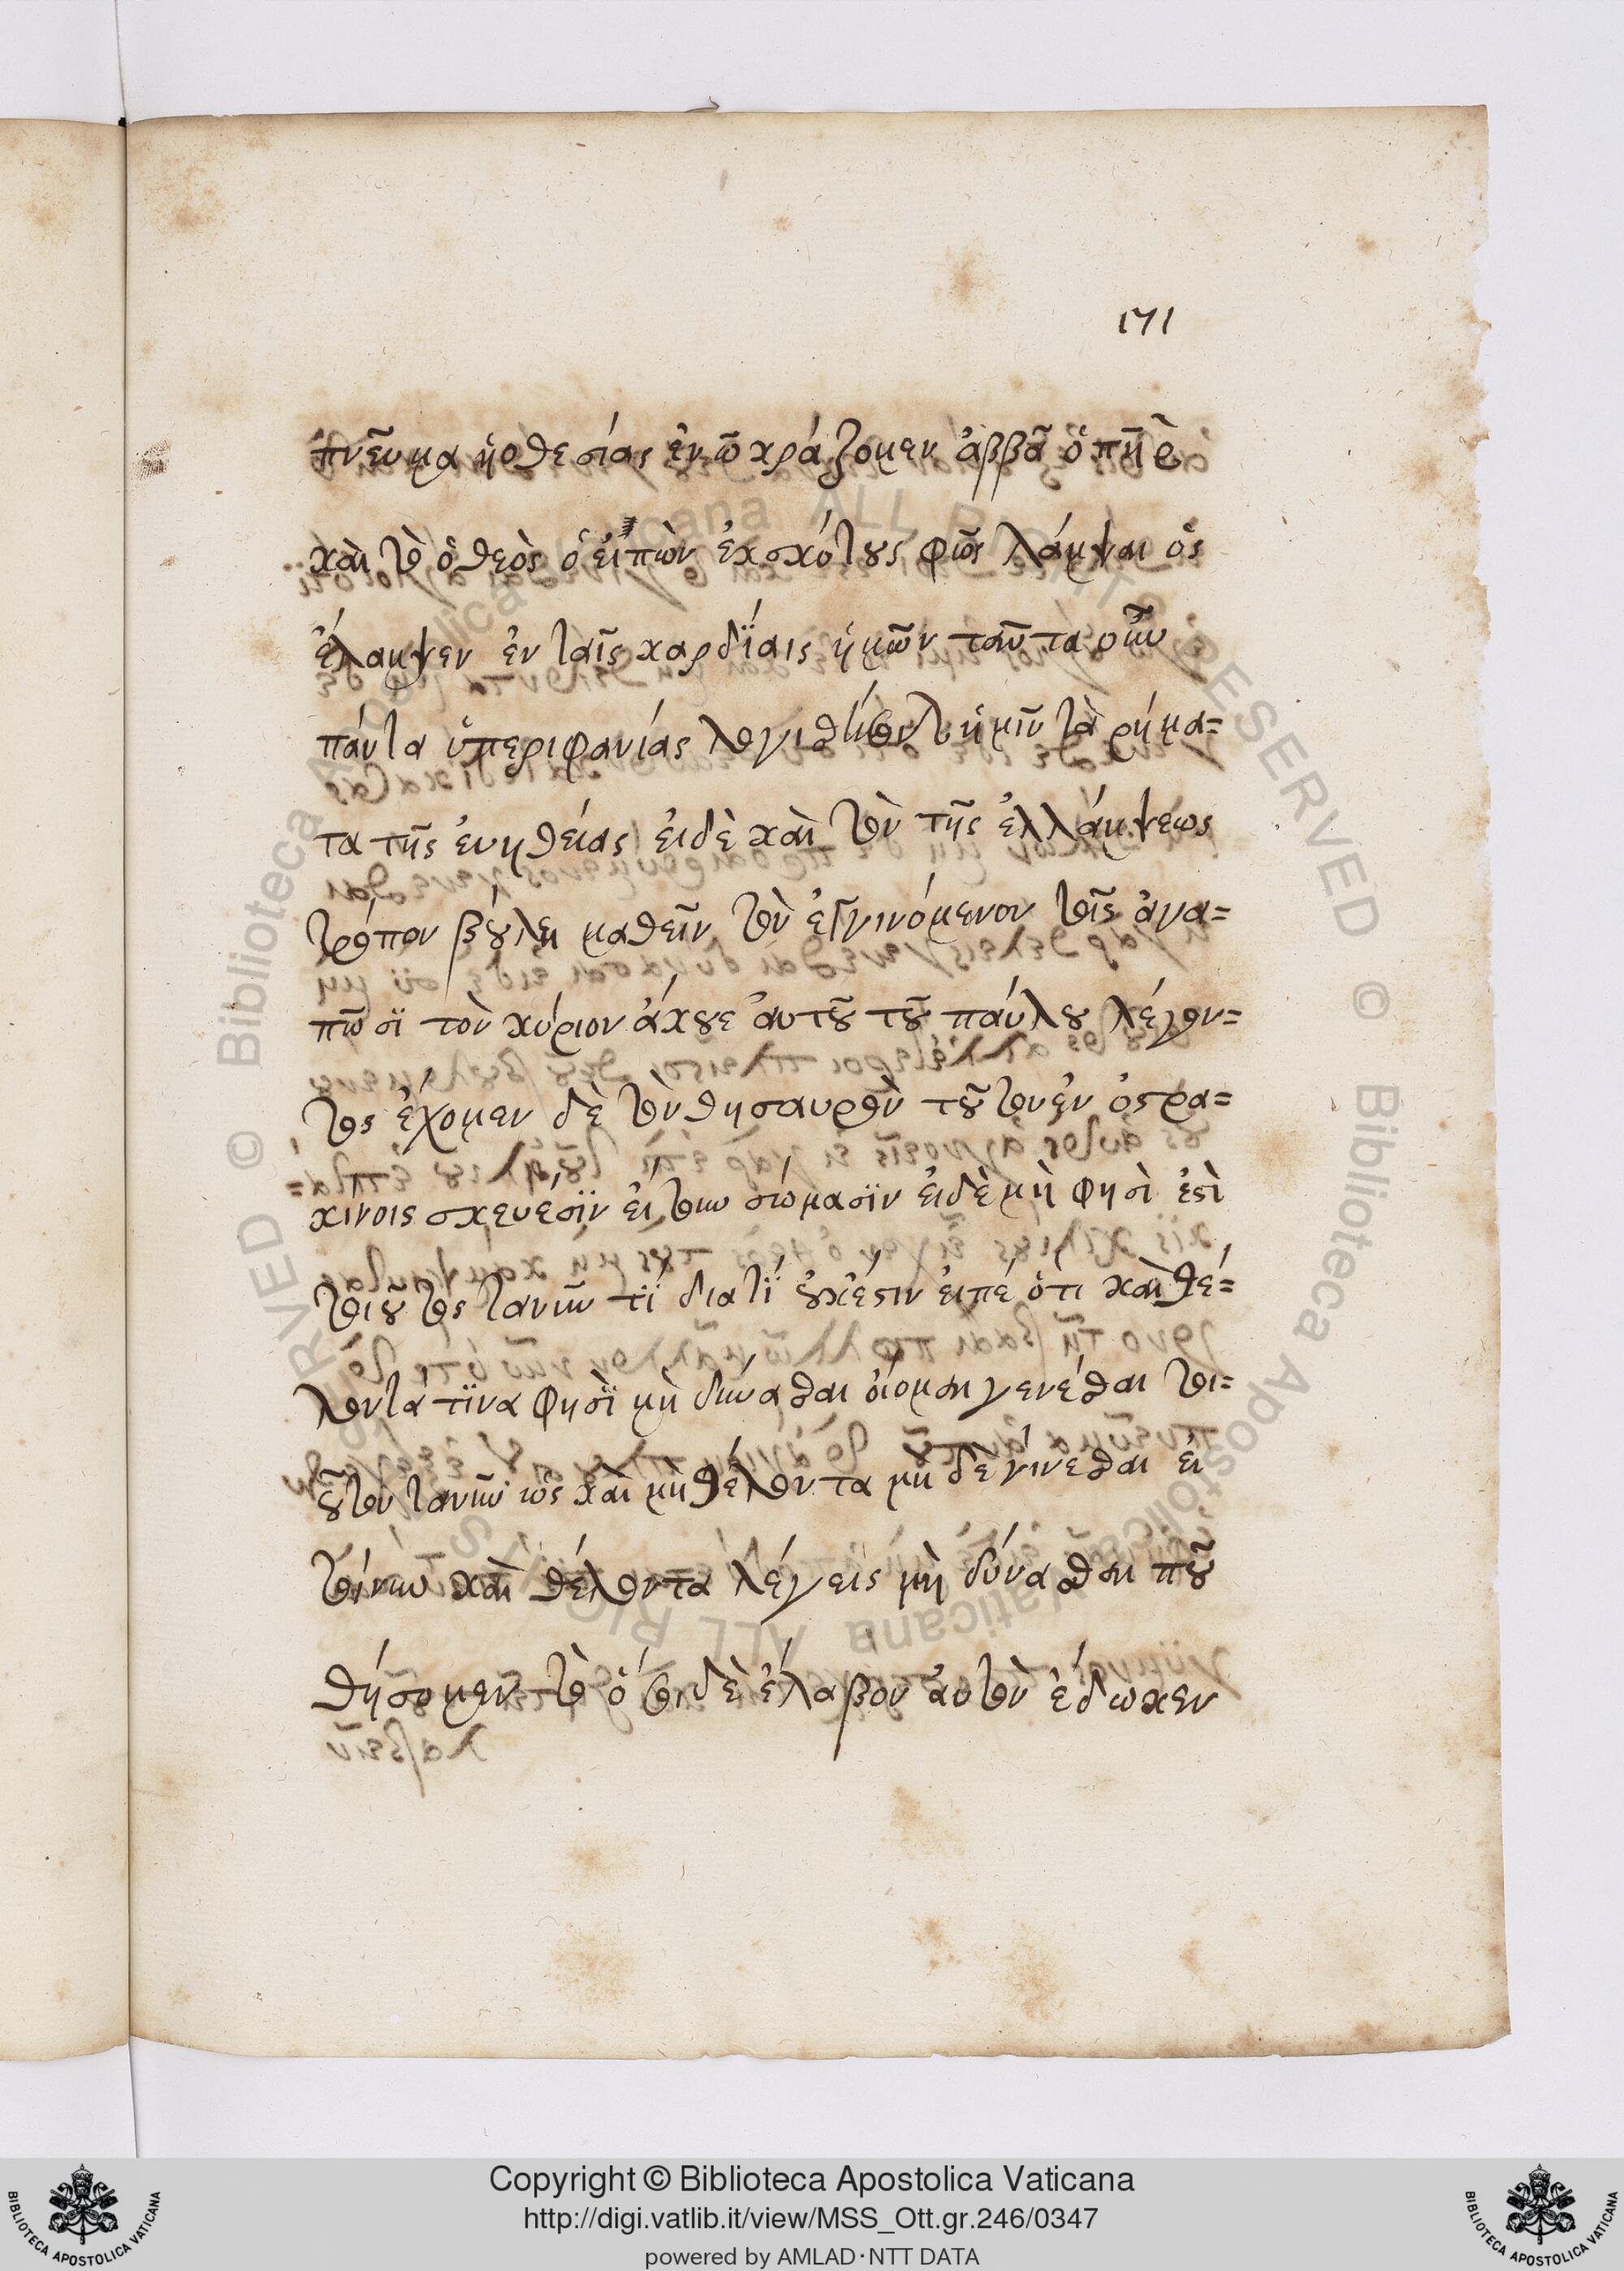 171
πνεῦμα ἡοθεσίας ἐν ῶ κράζομεν ἀββᾶ ὁ πη̄ρ
καὶ τὸ ὁ θεὸς ὁ εἰπὼν ἐκ σκότους φῶς λάμψαι ὃς
ἔλαμψεν ἐν ταῖς καρδΐαις ἡμῶν ταῦτα οὖν
πάντα ὑπεριφανίας ἡμῖν τὰ ρήμα=
τα τῆς ἐνηθείας εἰδὲ καὶ τὸν τῆς ἐλλάμψεως
τρόπον βούλει μαθεῖν τὸν ἐγγινόμενον τοῖς ἀγα=
πῶσϊ τὸν κύριον ἄκουε ἀυτοῦ τοῦ παύλου λέγον=
τος ἔχομεν δὲ τὸν θησαυρὸν τοῦτον ἐν ὀστρα=
κίνοις σκευέσϊν εἴτουν σώμασϊν εἰδὲ μὴ φησὶ ἐστὶ
τοιοῦτος τανῦν τΐ διατΐ οὐκ ἔστιν εἰπέ ὅτι καὶ θέ=
λοντά τϊνα φησῒ μὴ δύνασθαι οἴομαι γενέσθαι τοι=
οῦτον τανῦν ὡς καὶ μὴ θέλοντα μὴ δὲ γίνεσθαι εἰ
τοίνυν καὶ θέλοντα λέγεις μὴ δύνασθαι ποῦ
θήσομεν τὸ ὅσοι δὲ ἔλαβον ἀυτὸν ἔδωκεν
Copyright © Biblioteca Apostolica Vaticana
http://digi.vatlib.it/view/MSS_Ott.gr.246/0347
powered by AMLAD·NTT DATA
BIBLIOTECA APOSTOLICA VATICANA
BIBLIOTECA APOSTOLICA VATICANA